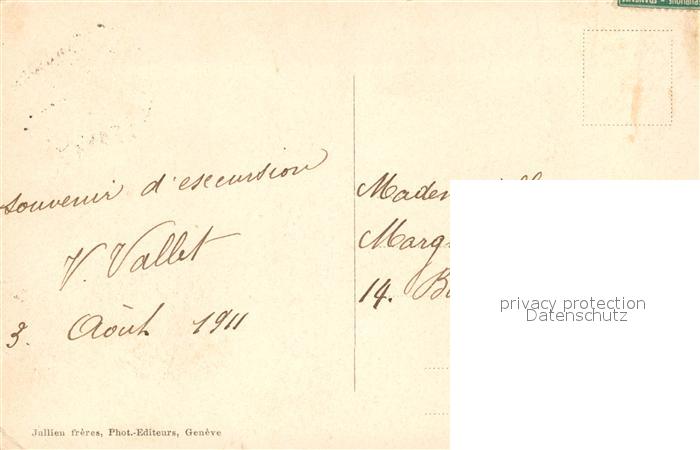 souvenir d'excursion
V. Vallet
3. Août 1911
Jullien frères, Phot.-Editeurs, Genève
Madem
Marg
14. B
privacy protection
Datenschutz